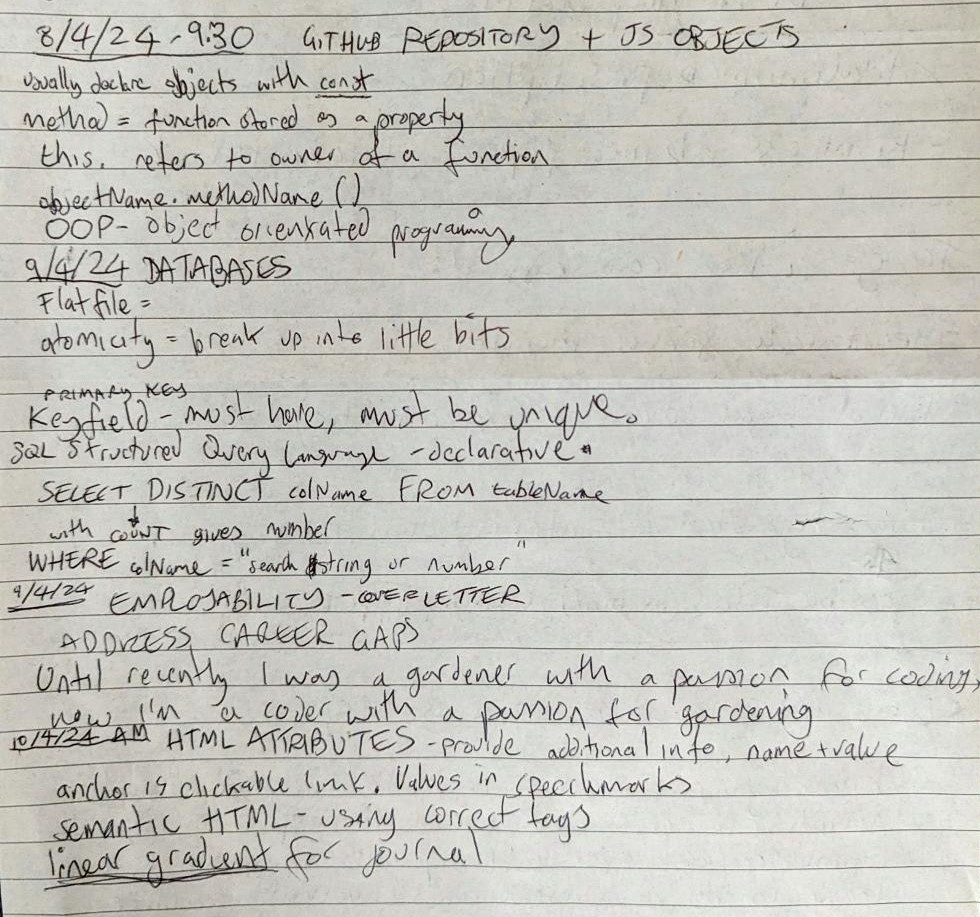 8/4/24 - 9:30 GITHUB REPOSITORY + JS OBJECTS
Usually declare objects with const
method = function stored as a property
this. refers to owner of a function
objectName.methodName ()
OOP - object orientated programming
9/4/24 DATABASES
Flat file =
atomicity = break up into little bits
PRIMARY KEY
Keyfield - must have, must be unique.
SQL Structured Query Language - declarative
SELECT DISTINCT colName FROM tableName
with COUNT gives number
WHERE colName = "search string or number"
9/4/24 EMPLOYABILITY - COVER LETTER
ADDRESS CAREER GAPS
Until recently I was a gardener with a passion for coding,
now I'm a coder with a passion for gardening
10/4/24 AM HTML ATTRIBUTES - provide additional info, name + value
anchor is clickable link. Values in speechmarks
semantic HTML - using correct tags
linear gradient for journal